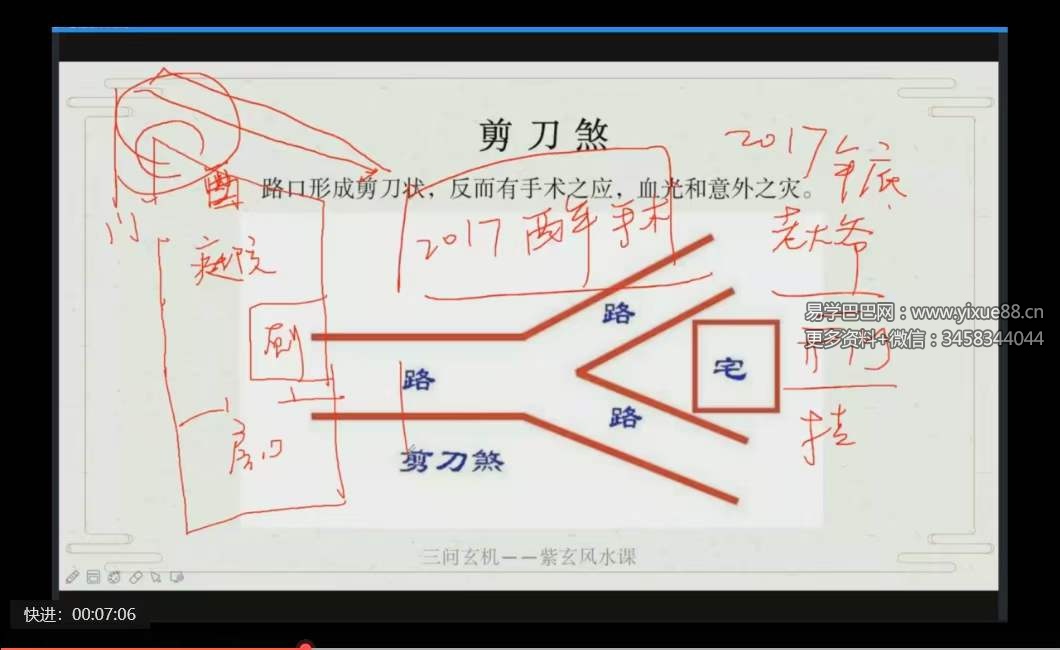 剪刀煞
2017年底
路口形成剪刀状，反而有手术之应，血光和意外之灾。
门
2017 酉年 手术
老大爷
庭院
路
易学巴巴网：www.yixue88.cn
更多资料+微信：3458344044
厕
宅
路
路
挂
剪刀煞
三问玄机——紫玄风水课
快进：00:07:06